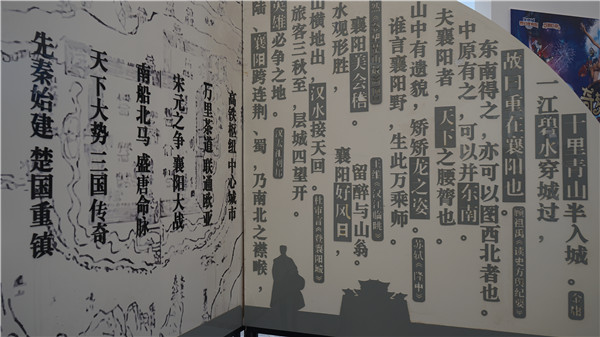 十里青山半入城。
一江碧水穿城过，
故曰重在襄阳也。 顾祖禹《读史方舆纪要》
东南得之，亦可以图西北者也。
中原有之，可以并东南
夫襄阳者，天下之腰膂也。
山中有遗貌，矫矫龙之姿。 苏轼《隆中》
谁言襄阳野，生此万乘师。
襄阳好风日，留醉与山翁。 王维《汉江临眺》
水观形胜，襄阳美会稽。
山横地出，汉水接天回。 杜审言《登襄阳城》
旅客三秋至，层城四望开。
英雄必争之地。
陆，襄阳跨连荆、蜀，乃南北之襟喉，
高铁枢纽 中心城市
万里茶道 联通欧亚
宋元之争 襄阳大战
南船北马 盛唐命脉
天下大势 三国传奇
先秦始建 楚国重镇